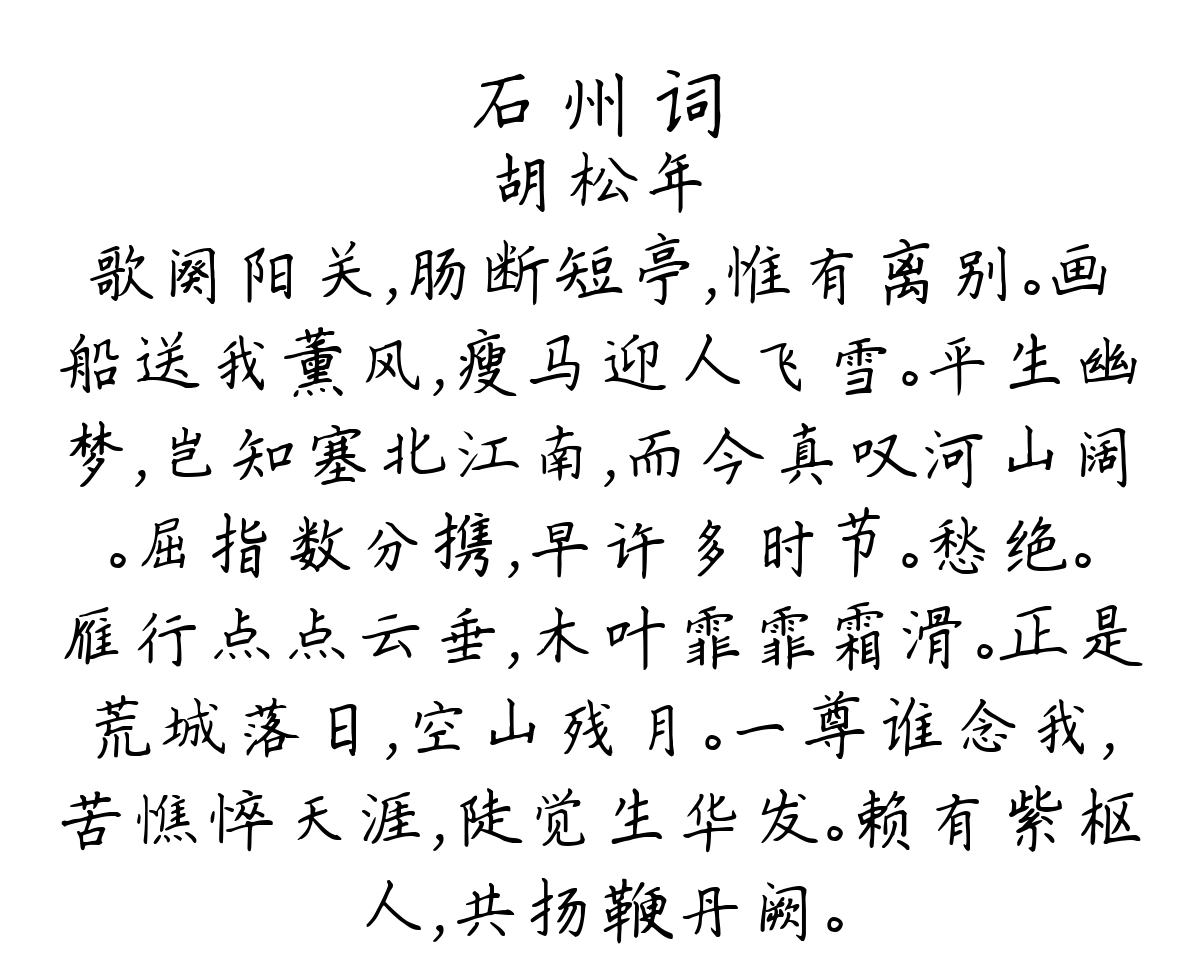 石州词
胡松年
歌阕阳关,肠断短亭,惟有离别。画
船送我薰风,瘦马迎人飞雪。平生幽
梦,岂知塞北江南,而今真叹河山阔
。屈指数分携,早许多时节。愁绝。
雁行点点云垂,木叶霏霏霜滑。正是
荒城落日,空山残月。一尊谁念我,
苦憔悴天涯,陡觉生华发。赖有紫枢
人,共扬鞭丹阙。